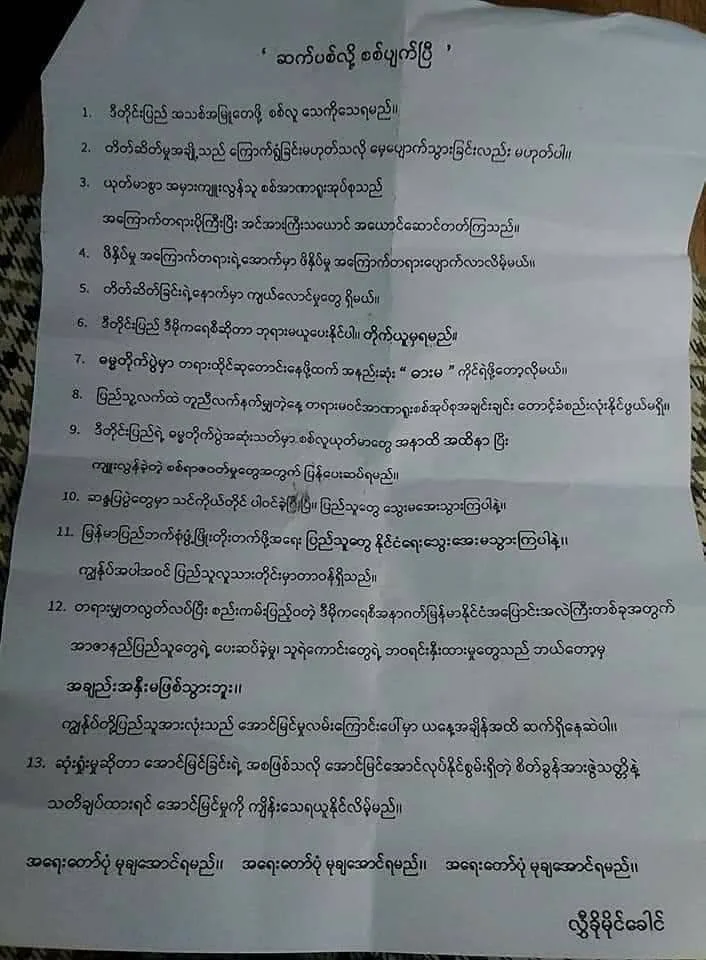 ‘ ဆက်ပစ်လို့ စစ်ပျက်ပြီ ’
1. ဒီတိုင်းပြည် အသစ်အမြုတေဖို့ စစ်လူ သေကိုသေရမည်။
2. တိတ်ဆိတ်မှုအချို့သည် ကြောက်ရွံ့ခြင်းမဟုတ်သလို မေ့ပျောက်သွားခြင်းလည်း မဟုတ်ပါ။
3. ယုတ်မာစွာ အမှားကျူးလွန်သူ စစ်အာဏာရူးအုပ်စုသည်
အကြောက်တရားပိုကြီးပြီး အင်အားကြီးသယောင် အယောင်ဆောင်တတ်ကြသည်။
4. ဖိနှိပ်မှု အကြောက်တရားရဲ့အောက်မှာ ဖိနှိပ်မှု အကြောက်တရားပျောက်လာလိမ့်မယ်။
5. တိတ်ဆိတ်ခြင်းရဲ့နောက်မှာ ကျယ်လောင်မှုတွေ ရှိမယ်။
6. ဒီတိုင်းပြည် ဒီမိုကရေစီဆိုတာ ဘုရားမယူပေးနိုင်ပါ။ တိုက်ယူမှရမည်။
7. ဓမ္မတိုက်ပွဲမှာ တရားထိုင်ဆုတောင်းနေဖို့ထက် အနည်းဆုံး “ ဓားမ ” ကိုင်ရဲဖို့တော့လိုမယ်။
8. ပြည်သူ့လက်ထဲ တူညီလက်နက်မျှတဲ့နေ့ တရားမဝင်အာဏာရူးစစ်အုပ်စုအချင်းချင်း တောင့်ခံစည်းလုံးနိုင်ဖွယ်မရှိ။
9. ဒီတိုင်းပြည်ရဲ့ ဓမ္မတိုက်ပွဲအဆုံးသတ်မှာ စစ်လူယုတ်မာတွေ အနာထိ အထိနာ ပြီး
ကျူးလွန်ခဲ့တဲ့ စစ်ရာဇဝတ်မှုတွေအတွက် ပြန်ပေးဆပ်ရမည်။
10. ဆန္ဒပြပွဲတွေမှာ သင်ကိုယ်တိုင် ပါဝင်ခဲ့ပြီးပြီ။ ပြည်သူတွေ သွေးမအေးသွားကြပါနဲ့။
11. မြန်မာပြည်ဘက်စုံဖွံ့ဖြိုးတိုးတက်ဖို့အရေး ပြည်သူတွေ နိုင်ငံရေးသွေးအေးမသွားကြပါနဲ့။
ကျွန်ုပ်အပါအဝင် ပြည်သူလူသားတိုင်းမှာတာဝန်ရှိသည်။
12. တရားမျှတလွတ်လပ်ပြီး စည်းကမ်းပြည့်ဝတဲ့ ဒီမိုကရေစီအနာဂတ်မြန်မာနိုင်ငံအပြောင်းအလဲကြီးတစ်ခုအတွက်
အာဇာနည်ပြည်သူတွေရဲ့ ပေးဆပ်ခဲ့မှု၊ သူရဲကောင်းတွေရဲ့ ဘဝရင်းနှီးထားမှုတွေသည် ဘယ်တော့မှ
အချည်းအနှီးမဖြစ်သွားဘူး။
ကျွန်ုပ်တို့ပြည်သူအားလုံးသည် အောင်မြင်မှုလမ်းကြောင်းပေါ်မှာ ယနေ့အချိန်အထိ ဆက်ရှိနေဆဲပါ။
13. ဆုံးရှုံးမှုဆိုတာ အောင်မြင်ခြင်းရဲ့ အစဖြစ်သလို အောင်မြင်အောင်လုပ်နိုင်စွမ်းရှိတဲ့ စိတ်ခွန်အားဇွဲသတ္တိနဲ့
သတိချပ်ထားရင် အောင်မြင်မှုကို ကျိန်းသေရယူနိုင်လိမ့်မည်။
အရေးတော်ပုံ မုချအောင်ရမည်။ အရေးတော်ပုံ မုချအောင်ရမည်။ အရေးတော်ပုံ မုချအောင်ရမည်။
လွှီခိုမိုင်ခေါင်